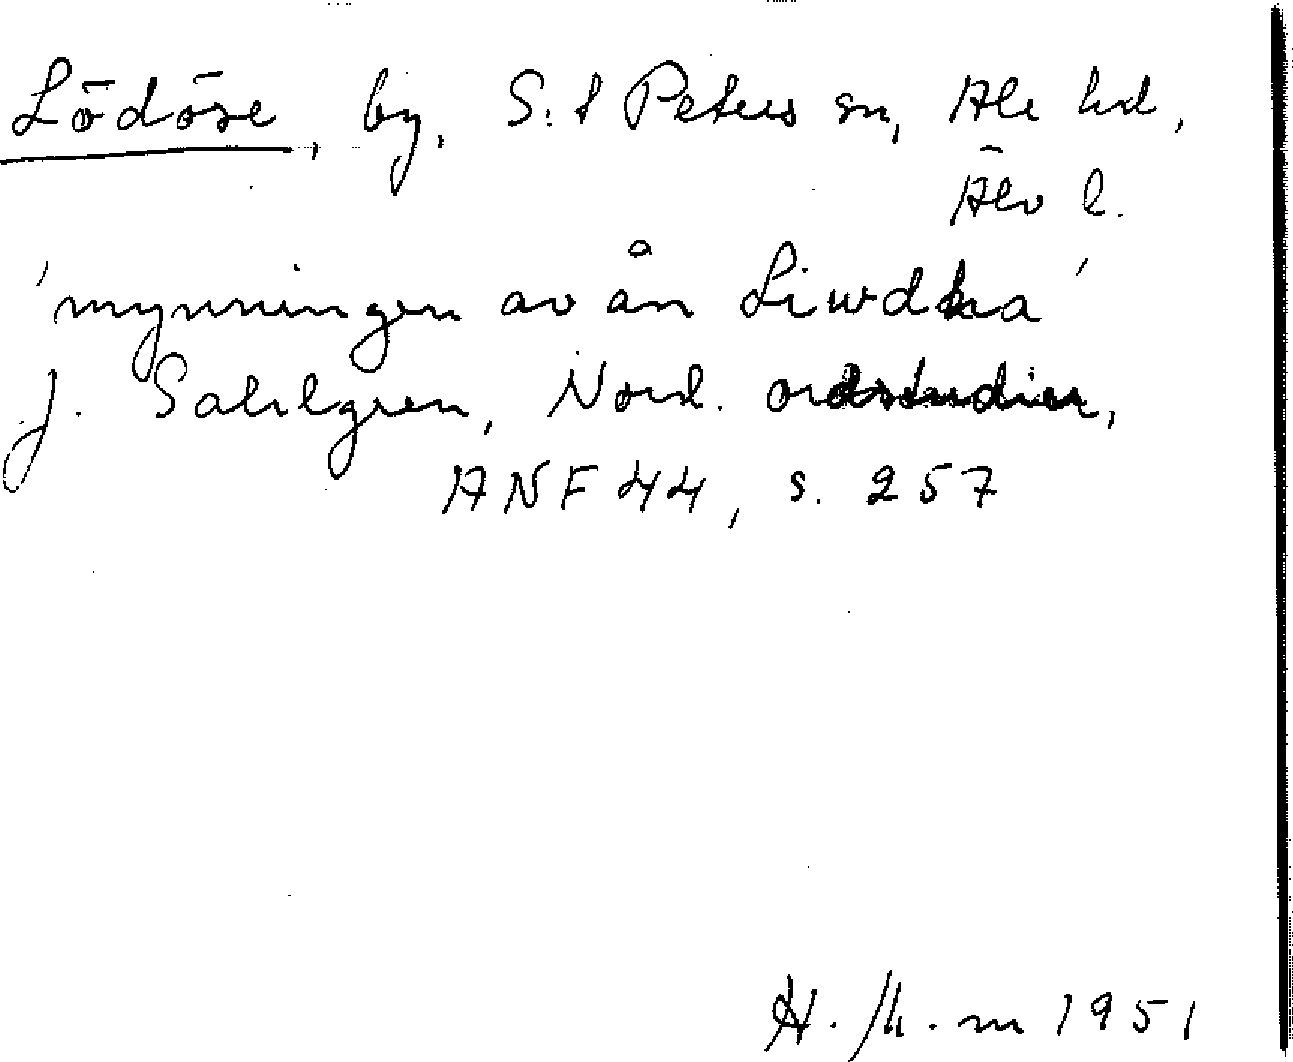 Lödöse, by, S:t Peters sn, Ale hd,
Älv l.
'mynningen av ån Liwdha'
J. Sahlgren, Nord. ordstudier,
ANF 44, s. 257
1951